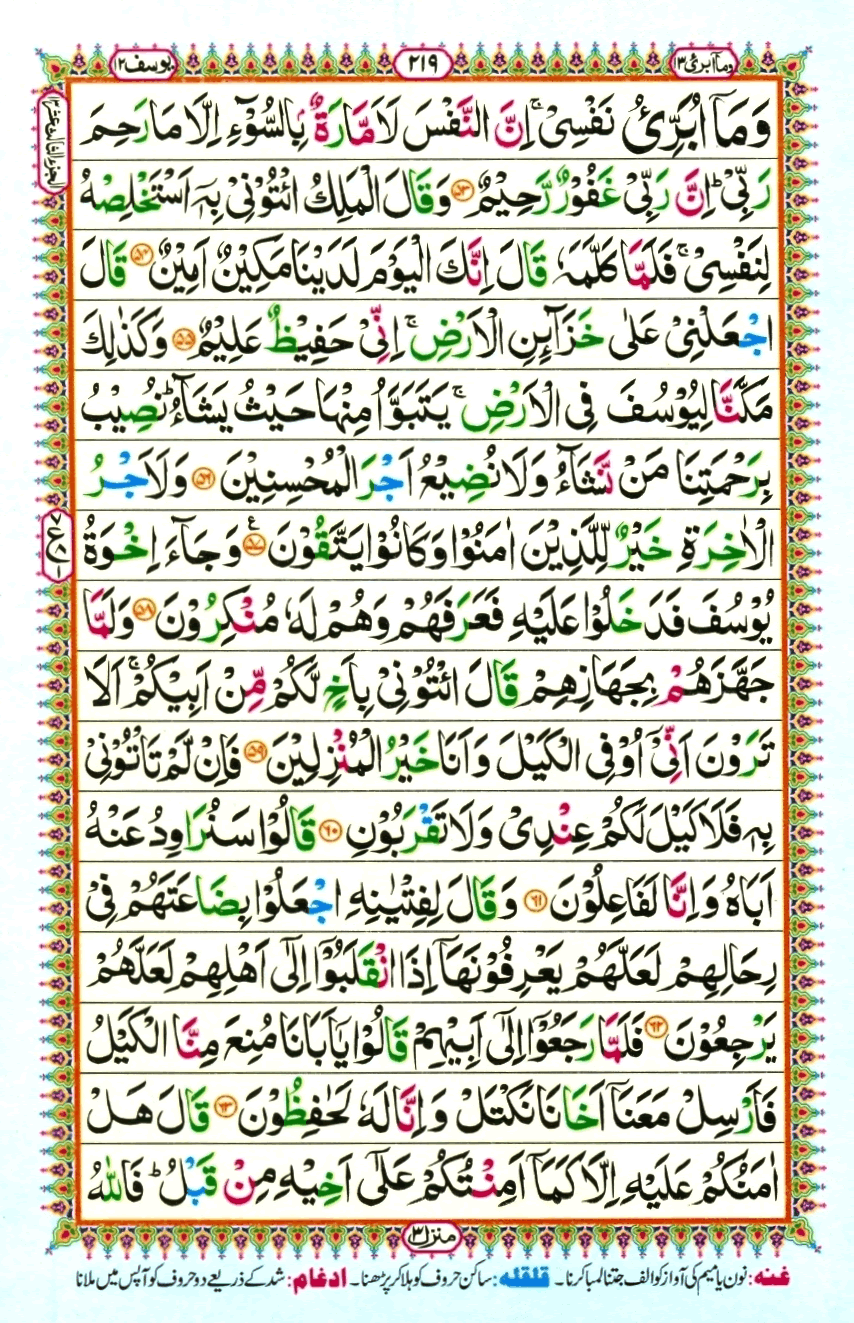 وما ابرئ ۱۳
۲۱۹
يوسف ۱۲
الجزء الثالث عشر ۱۳
وَمَاۤ اُبَرِّئُ نَفْسِىْ ۚ اِنَّ النَّفْسَ لَاَمَّارَةٌۢ بِالسُّوْٓءِ اِلَّا مَا رَحِمَ
رَبِّىْ ؕ اِنَّ رَبِّىْ غَفُوْرٌ رَّحِيْمٌ ۵۳ وَقَالَ الْمَلِكُ ائْتُوْنِىْ بِهٖۤ اَسْتَخْلِصْهُ
لِنَفْسِىْ ۚ فَلَمَّا كَلَّمَهٗ قَالَ اِنَّكَ الْيَوْمَ لَدَيْنَا مَكِيْنٌ اَمِيْنٌ ۵۴ قَالَ
اجْعَلْنِىْ عَلٰى خَزَآىِٕنِ الْاَرْضِ ۚ اِنِّىْ حَفِيْظٌ عَلِيْمٌ ۵۵ وَكَذٰلِكَ
مَكَّنَّا لِيُوْسُفَ فِى الْاَرْضِ ۚ يَتَبَوَّاُ مِنْهَا حَيْثُ يَشَآءُ ؕ نُصِيْبُ
بِرَحْمَتِنَا مَنْ نَّشَآءُ وَلَا نُضِيْعُ اَجْرَ الْمُحْسِنِيْنَ ۵۶ وَلَاَجْرُ
الْاٰخِرَةِ خَيْرٌ لِّلَّذِيْنَ اٰمَنُوْا وَكَانُوْا يَتَّقُوْنَ ۵۷ ع وَجَآءَ اِخْوَةُ
يُوْسُفَ فَدَخَلُوْا عَلَيْهِ فَعَرَفَهُمْ وَهُمْ لَهٗ مُنْكِرُوْنَ ۵۸ وَلَمَّا
جَهَّزَهُمْ بِجَهَازِهِمْ قَالَ ائْتُوْنِىْ بِاَخٍ لَّكُمْ مِّنْ اَبِيْكُمْ ۚ اَلَا
تَرَوْنَ اَنِّىْۤ اُوْفِى الْكَيْلَ وَاَنَا خَيْرُ الْمُنْزِلِيْنَ ۵۹ فَاِنْ لَّمْ تَاْتُوْنِىْ
بِهٖ فَلَا كَيْلَ لَكُمْ عِنْدِىْ وَلَا تَقْرَبُوْنِ ۶۰ قَالُوْا سَنُرَاوِدُ عَنْهُ
اَبَاهُ وَاِنَّا لَفَاعِلُوْنَ ۶۱ وَقَالَ لِفِتْيٰنِهِ اجْعَلُوْا بِضَاعَتَهُمْ فِىْ
رِحَالِهِمْ لَعَلَّهُمْ يَعْرِفُوْنَهَاۤ اِذَا انْقَلَبُوْۤا اِلٰٓى اَهْلِهِمْ لَعَلَّهُمْ
يَرْجِعُوْنَ ۶۲ فَلَمَّا رَجَعُوْۤا اِلٰٓى اَبِيْهِمْ قَالُوْا يٰۤاَبَانَا مُنِعَ مِنَّا الْكَيْلُ
فَاَرْسِلْ مَعَنَاۤ اَخَانَا نَكْتَلْ وَاِنَّا لَهٗ لَحٰفِظُوْنَ ۶۳ قَالَ هَلْ
اٰمَنُكُمْ عَلَيْهِ اِلَّا كَمَاۤ اَمِنْتُكُمْ عَلٰٓى اَخِيْهِ مِنْ قَبْلُ ؕ فَاللّٰهُ
منزل ۳
غنہ: نون یا میم کی آواز کو الف جتنا لمبا کرنا۔ قلقلہ: ساکن حروف کو ہلا کر پڑھنا۔ ادغام: شد کے ذریعے دو حروف کو آپس میں ملانا